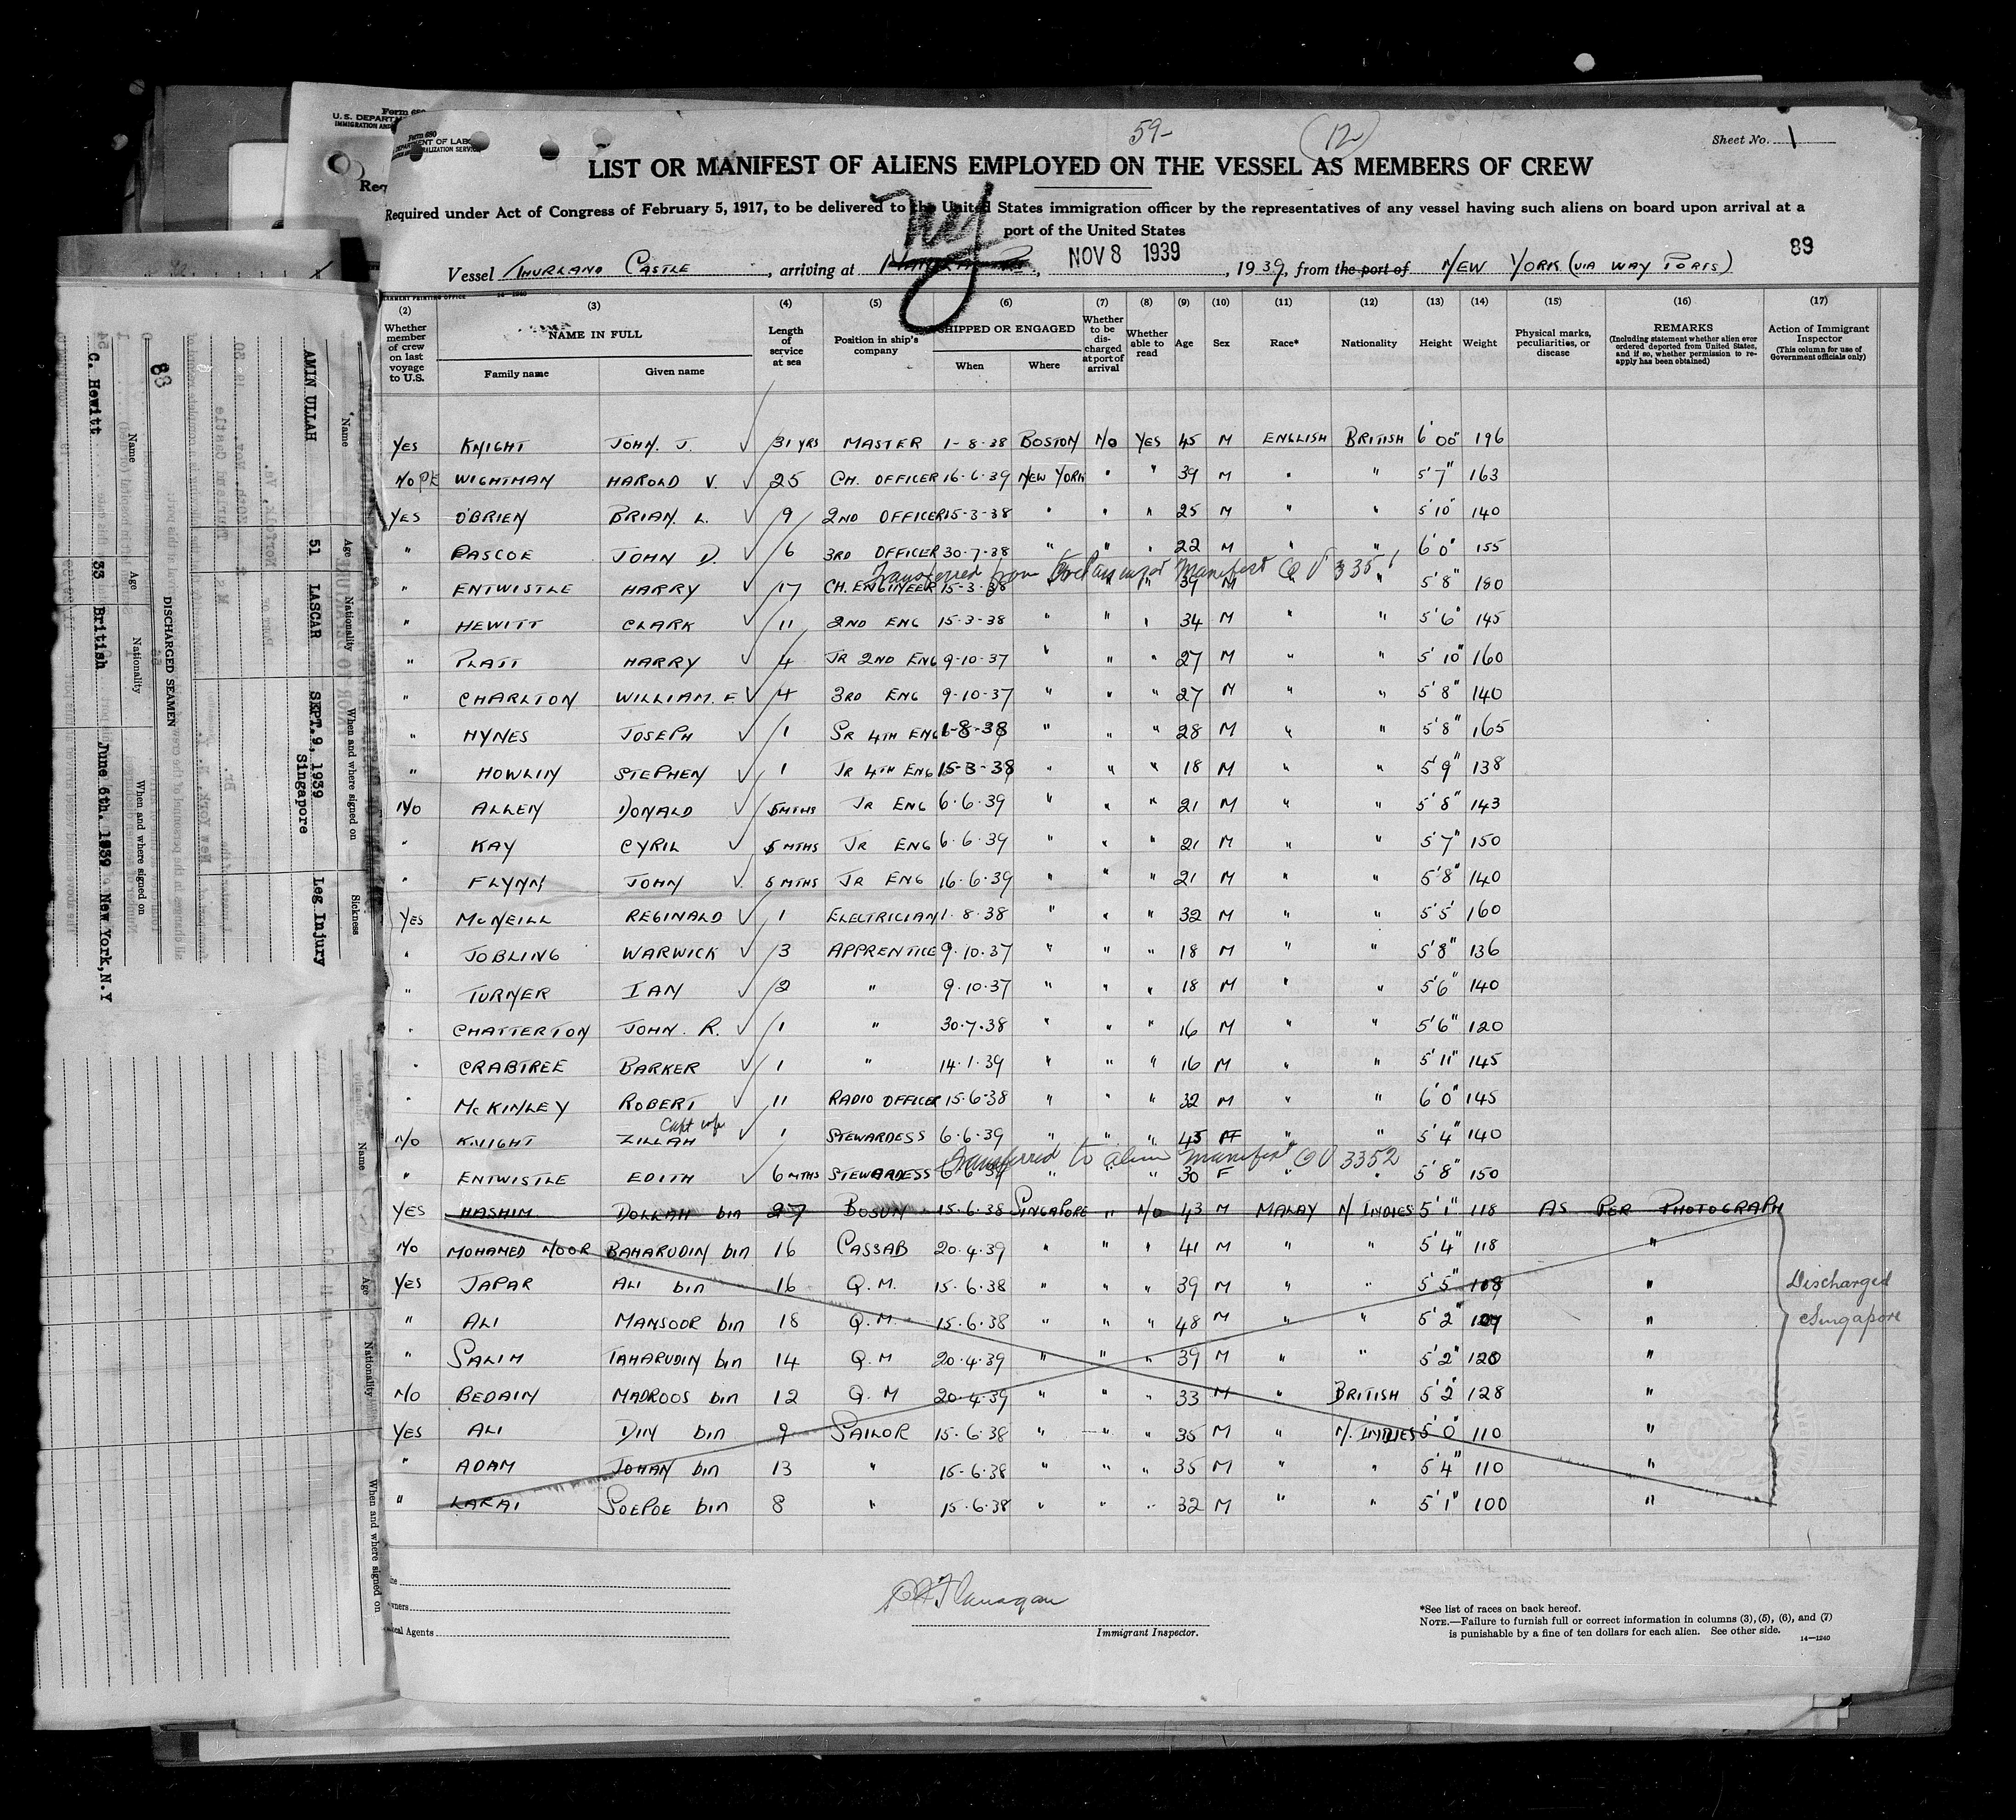 Form 680
U. S. DEPART
IMMIGRATION AND
Form 680
DEPARTMENT OF LAB
NATURALIZATION SERVICE
Req
59-
(12)
Sheet No. 1
LIST OR MANIFEST OF ALIENS EMPLOYED ON THE VESSEL AS MEMBERS OF CREW
Required under Act of Congress of February 5, 1917, to be delivered to the United States immigration officer by the representatives of any vessel having such aliens on board upon arrival at a
port of the United States
Vessel THURLAND CASTLE, arriving at NOV 8 1939, 1939, from the port of NEW YORK (VIA WAY PORTS)
89
(2) (3) (4) (5) (6) (7) (8) (9) (10) (11) (12) (13) (14) (15) (16) (17)
Whether member of crew on last voyage to U.S.
NAME IN FULL
Family name
Given name
Length of service at sea
Position in ship's company
SHIPPED OR ENGAGED
When
Where
Whether to be discharged at port of arrival
Whether able to read
Age
Sex
Race*
Nationality
Height
Weight
Physical marks, peculiarities, or disease
REMARKS
(Including statement whether alien ever ordered deported from United States, and if so, whether permission to reapply has been obtained)
Action of Immigrant Inspector
(This column for use of Government officials only)
YES KNIGHT JOHN. J. 31 YRS MASTER 1-8-38 BOSTON NO YES 45 M ENGLISH BRITISH 6'00" 196
NO WIGHTMAN HAROLD V. 25 CH. OFFICER 16.6.39 NEW YORK " " 39 M " " 5'7" 163
YES O'BRIEN BRIAN. L. 9 2ND OFFICER 15-3-38 " " " 25 M " " 5'10" 140
" PASCOE JOHN D. 6 3RD OFFICER 30.7.38 " " " 22 M " " 6'0" 155
Transferred from Manifest
" ENTWISTLE HARRY 17 CH. ENGINEER 15-3-38 " " 39 M " " 5'8" 180
" HEWITT CLARK 11 2ND ENG 15-3-38 " " " 34 M " " 5'6" 145
" PLATT HARRY 4 JR 2ND ENG 9-10-37 " " " 27 M " " 5'10" 160
" CHARLTON WILLIAM. F. 4 3RD ENG 9-10-37 " " " 27 M " " 5'8" 140
" HYNES JOSEPH 1 SR 4TH ENG 1-8-38 " " " 28 M " " 5'8" 165
" HOWLIN STEPHEN 1 JR 4TH ENG 15-3-38 " " " 18 M " " 5'9" 138
NO ALLEN DONALD 5 MTHS JR ENG 6.6.39 " " " 21 M " " 5'8" 143
" KAY CYRIL 5 MTHS JR ENG 6.6.39 " " " 21 M " " 5'7" 150
" FLYNN JOHN 5 MTHS JR ENG 16.6.39 " " " 21 M " " 5'8" 140
YES McNEILL REGINALD 1 ELECTRICIAN 1.8.38 " " " 32 M " " 5'5" 160
" JOBLING WARWICK 3 APPRENTICE 9.10.37 " " " 18 M " " 5'8" 136
" TURNER IAN 2 " 9.10.37 " " " 18 M " " 5'6" 140
" CHATTERTON JOHN. R. 1 " 30.7.38 " " " 16 M " " 5'6" 120
" CRABTREE BARKER 1 " 14.1.39 " " " 16 M " " 5'11" 145
" McKINLEY ROBERT 11 RADIO OFFICER 15.6.38 " " " 32 M " " 6'0" 145
Capt wife
NO KNIGHT ZILLAH 1 STEWARDESS 6.6.39 " " " 45 F " " 5'4" 140
Transferred to alien manifest 3352
" ENTWISTLE EDITH 6 MTHS STEWARDESS 6.6.39 " " " 30 F " " 5'8" 150
YES HASHIM DOLLAH bin 27 BOSUN 15.6.38 SINGAPORE " NO 43 M MALAY N INDIES 5'1" 118 AS PER PHOTOGRAPH
NO MOHAMED NOOR BAHARUDIN bin 16 CASSAB 20.4.39 " " " 41 M " " 5'4" 118 "
YES JAPAR ALI bin 16 Q.M. 15.6.38 " " " 39 M " " 5'5" 108 "
Discharged
Singapore
" ALI MANSOOR bin 18 Q.M. 15.6.38 " " " 48 M " " 5'2" "
" SALIM TAHARUDIN bin 14 Q.M 20.4.39 " " " 39 M " " 5'2" 120 "
NO BEDAIN MADROOS bin 12 Q.M 20.4.39 " " " 33 M " BRITISH 5'2" 128 "
YES ALI DIN bin 9 SAILOR 15.6.38 " " " 35 M " N. INDIES 5'0" 110 "
" ADAM JOHAN bin 13 " 15.6.38 " " " 35 M " " 5'4" 110 "
" LAKAI SOEPOE bin 8 " 15.6.38 " " " 32 M " " 5'1" 100 "
wners
ocal Agents
Immigrant Inspector.
*See list of races on back hereof.
NOTE.—Failure to furnish full or correct information in columns (3), (5), (6), and (7)
is punishable by a fine of ten dollars for each alien. See other side.
14—1240
Name Age Nationality When and where signed on Sickness
AMIN ULLAH 51 LASCAR SEPT.9, 1939 Singapore Leg Injury
DISCHARGED SEAMEN
88
Name Age Nationality When and where signed on
C. Hewitt 33 British June 6th. 1939 New York, N.Y
Name Age Nationality When and where signed on